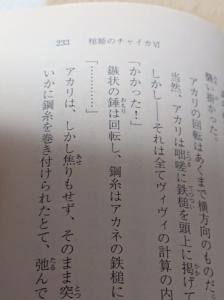 233　棺姫のチャイカⅥ
襲い掛かった。
アカリの回転はあくまで横方向のものだ
当然、アカリは咄嗟に鉄槌を頭上に掲げて
しかし――それは全てヴィヴィの計算の内
「かかった！」
鏃状の錘は回転し、鋼糸はアカネの鉄槌に
「…………」
アカリは、しかし焦りもせず、そのまま突
いかに鋼糸を巻き付けられたとて、弛んで